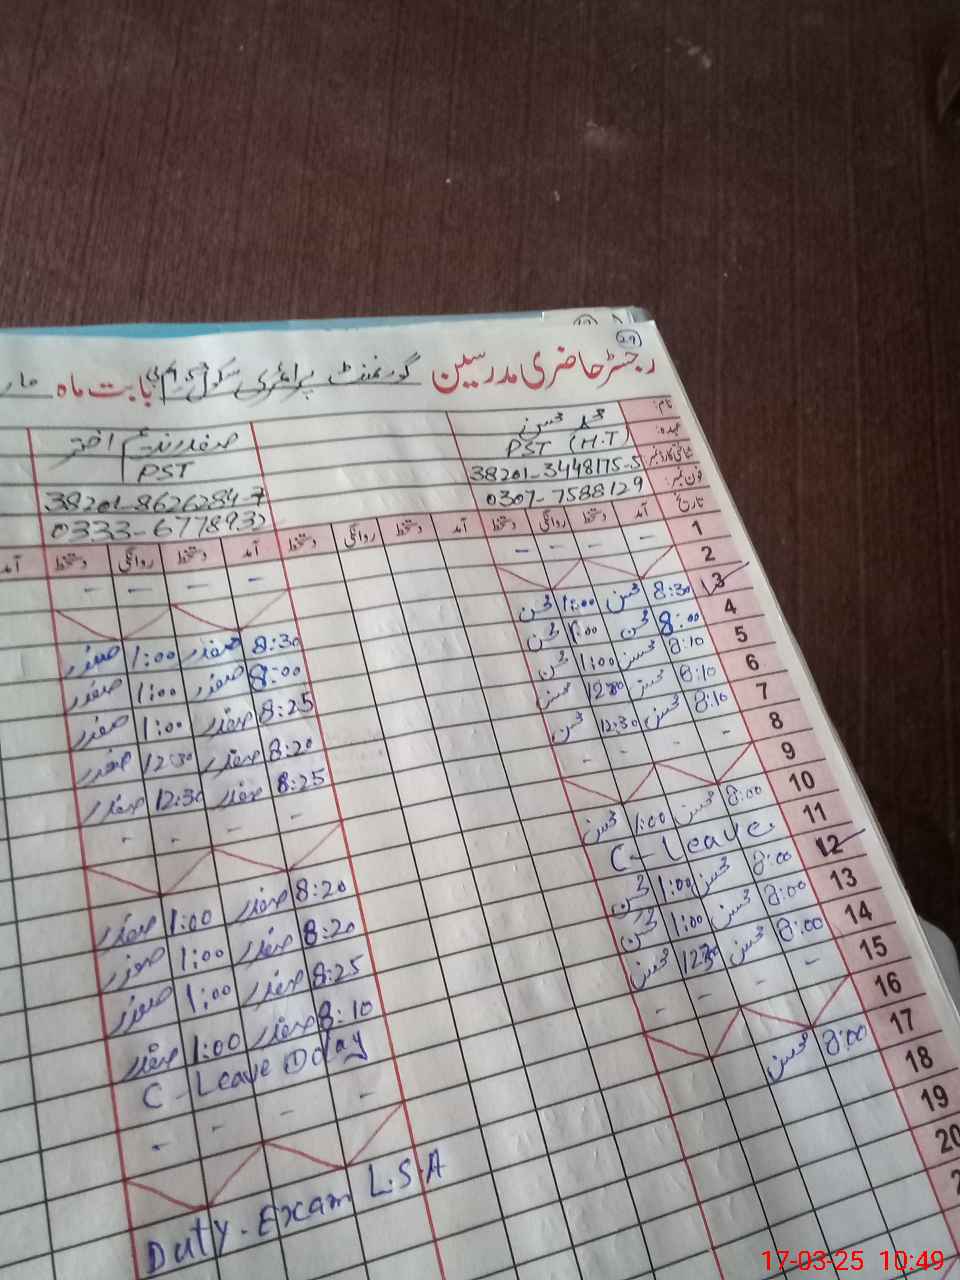 29
رجسٹر حاضری مدرسین گورنمنٹ پرائمری سکول بابت ماہ
نام: محمد محسن صفدر ندیم اختر
عہدہ: PST (H.T) PST
شناختی کارڈ نمبر: 38201-3448175-5 38201-8626284-7
فون نمبر: 0307-7588129 0333-677893
تاریخ آمد دستخط روانگی دستخط آمد دستخط روانگی دستخط آمد دستخط روانگی دستخط آمد
1 - - - - - - - -
2
3 8:30 محسن 1:00 محسن 8:30 صفدر 1:00 صفدر
4 8:00 محسن 1:00 محسن 8:00 صفدر 1:00 صفدر
5 8:10 محسن 1:00 محسن 8:25 صفدر 1:00 صفدر
6 8:10 محسن 12:30 محسن 8:20 صفدر 12:30 صفدر
7 8:10 محسن 12:30 محسن 8:25 صفدر 12:30 صفدر
8 - - - - - -
9
10 8:00 محسن 1:00 محسن 8:20 صفدر 1:00 صفدر
11 C-Leave 8:20 صفدر 1:00 صفدر
12 8:00 محسن 1:00 محسن 8:25 صفدر 1:00 صفدر
13 8:00 محسن 1:00 محسن 8:10 صفدر 1:00 صفدر
14 8:00 محسن 12:30 محسن C-Leave
15 - - - - - - - -
16
17 8:00 محسن Duty. Exam L.S.A
18
19
20
17-03-25 10:49